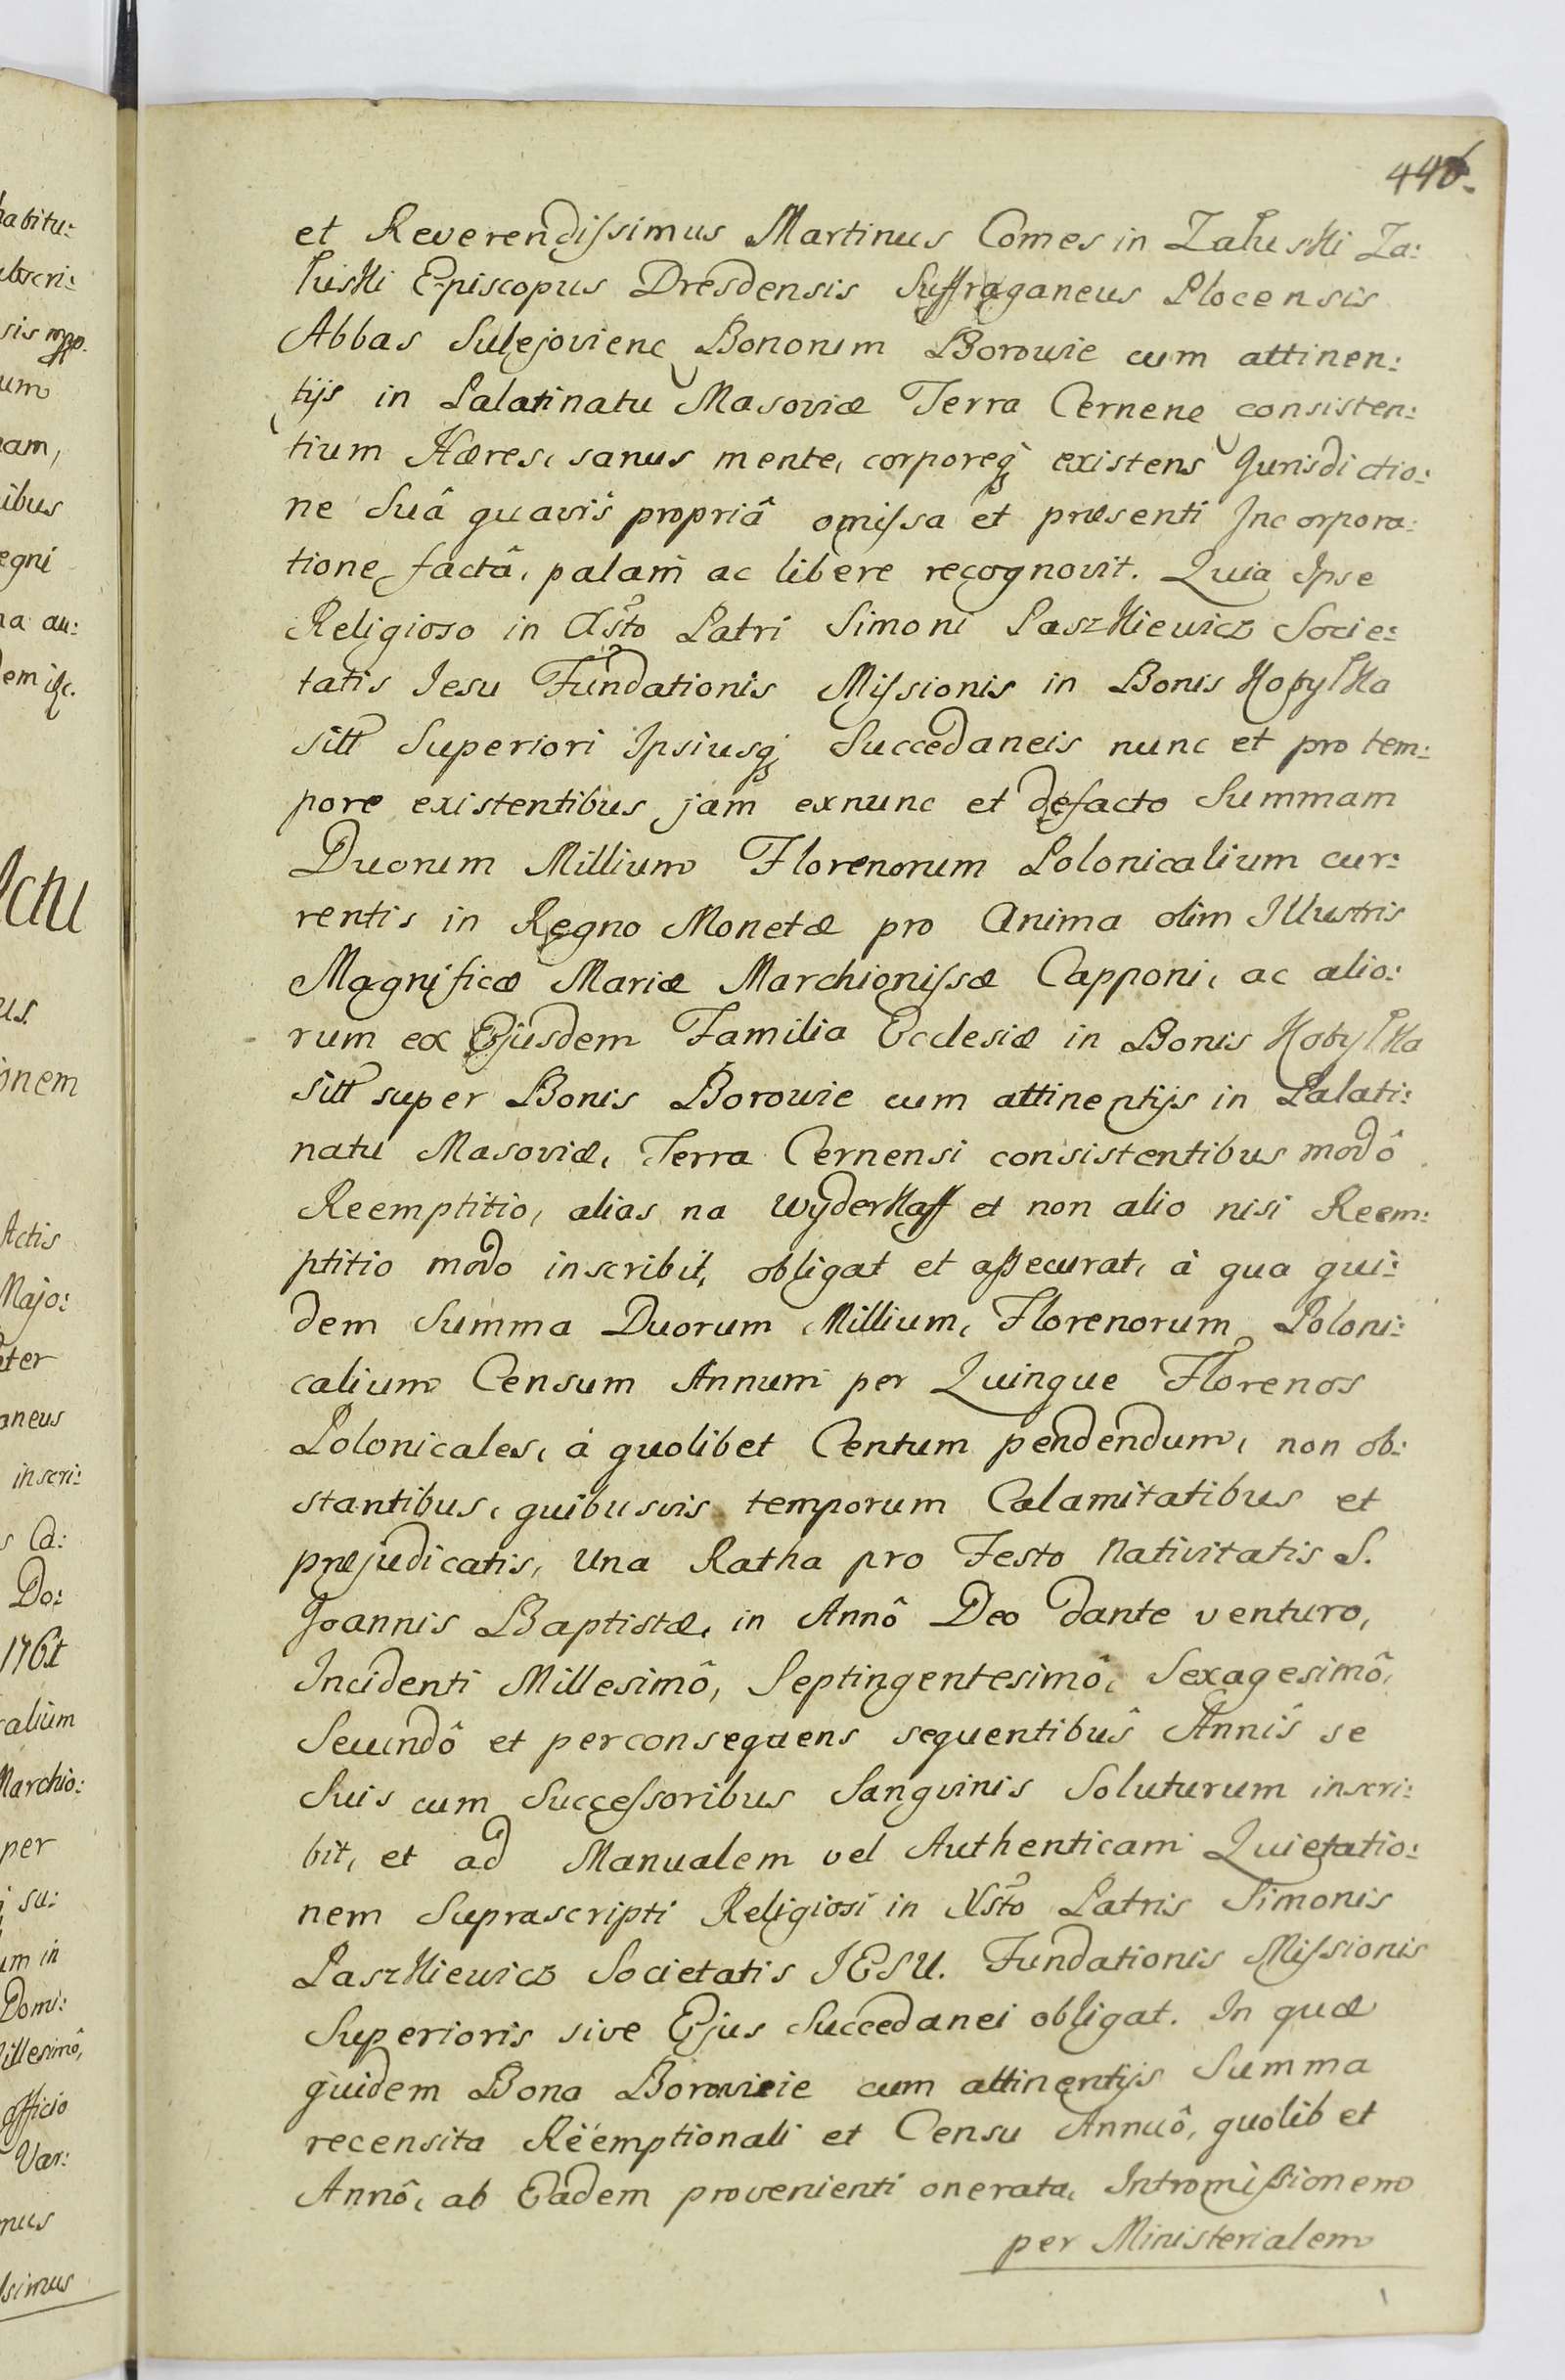 habitu:
ubscri:
sis mpp.
um
nam,
ibus
egni
na au:
dem
Actu
us.
onem
Actis
Majo:
ter
aneus
inscri:
s Ca:
Do:
1761
calium
Marchio:
per
su:
um in
Domi:
illesimô,
officio
Var:
nus
ssimus
446.
et Reverendissimus Martinus Comes in Załuski Za:
łuski Episcopus Dresdensis Suffraganeus Plocensis
Abbas Sulejoviens Bonorum Borowie cum attinen:
tijs in Palatinatu Masoviæ Terra Cernens consisten:
tium Hæres, sanus mente, corporeq existens Jurisdictio:
ne Suâ quavis propriâ omissa et præsenti Incorpora:
tione factâ, palam ac libere recognovit. Quia Ipse
Religioso in Xsto Patri Simoni Paszkiewicz Socie:
tatis Jesu Fundationis Missionis in Bonis Kobyłka
sitt Superiori Ipsiusq Succedaneis nunc et pro tem:
pore existentibus jam exnunc et defacto Summam
Duorum Millium Florenorum Polonicalium cur:
rentis in Regno Monetæ pro Anima olim Illustris
Magnificæ Mariæ Marchionissæ Capponi, ac alio:
rum ex Ejusdem Familia Ecclesiæ in Bonis Kobyłka
sitt super Bonis Borowie cum attinentijs in Palati:
natu Masoviæ, Terra Cernensi consistentibus modô
Reemptitio, alias na wyderkaff et non alio nisi Reem:
ptitio modo inscribit, obligat et assecurat, à qua qui:
dem Summa Duorum Millium, Florenorum Poloni:
calium Censum Annum per Quinque Florenos
Polonicales, à quolibet Centum pendendum, non ob:
stantibus, quibusvis temporum Calamitatibus et
præjudicatis, una Ratha pro Festo Nativitatis S.
Joannis Baptistæ, in Annô Deo dante venturo,
Incidenti Millesimô, Septingentesimô, Sexagesimô,
Secundô et perconsequens sequentibus Annis se
Suis cum Successoribus Sangvinis Soluturum inscri:
bit, et ad Manualem vel Authenticam Quietatio:
nem Suprascripti Religiosi in Xsto Patris Simonis
Paszkiewicz Societatis JESU. Fundationis Missionis
Superioris sive Ejus Succedanei obligat. In quæ
quidem Bona Borowieie cum attinentijs Summa
recensita Reemptionali et Censu Annuô, quolibet
Annô, ab Eadem provenienti onerata, Intromissionem
per Ministerialem